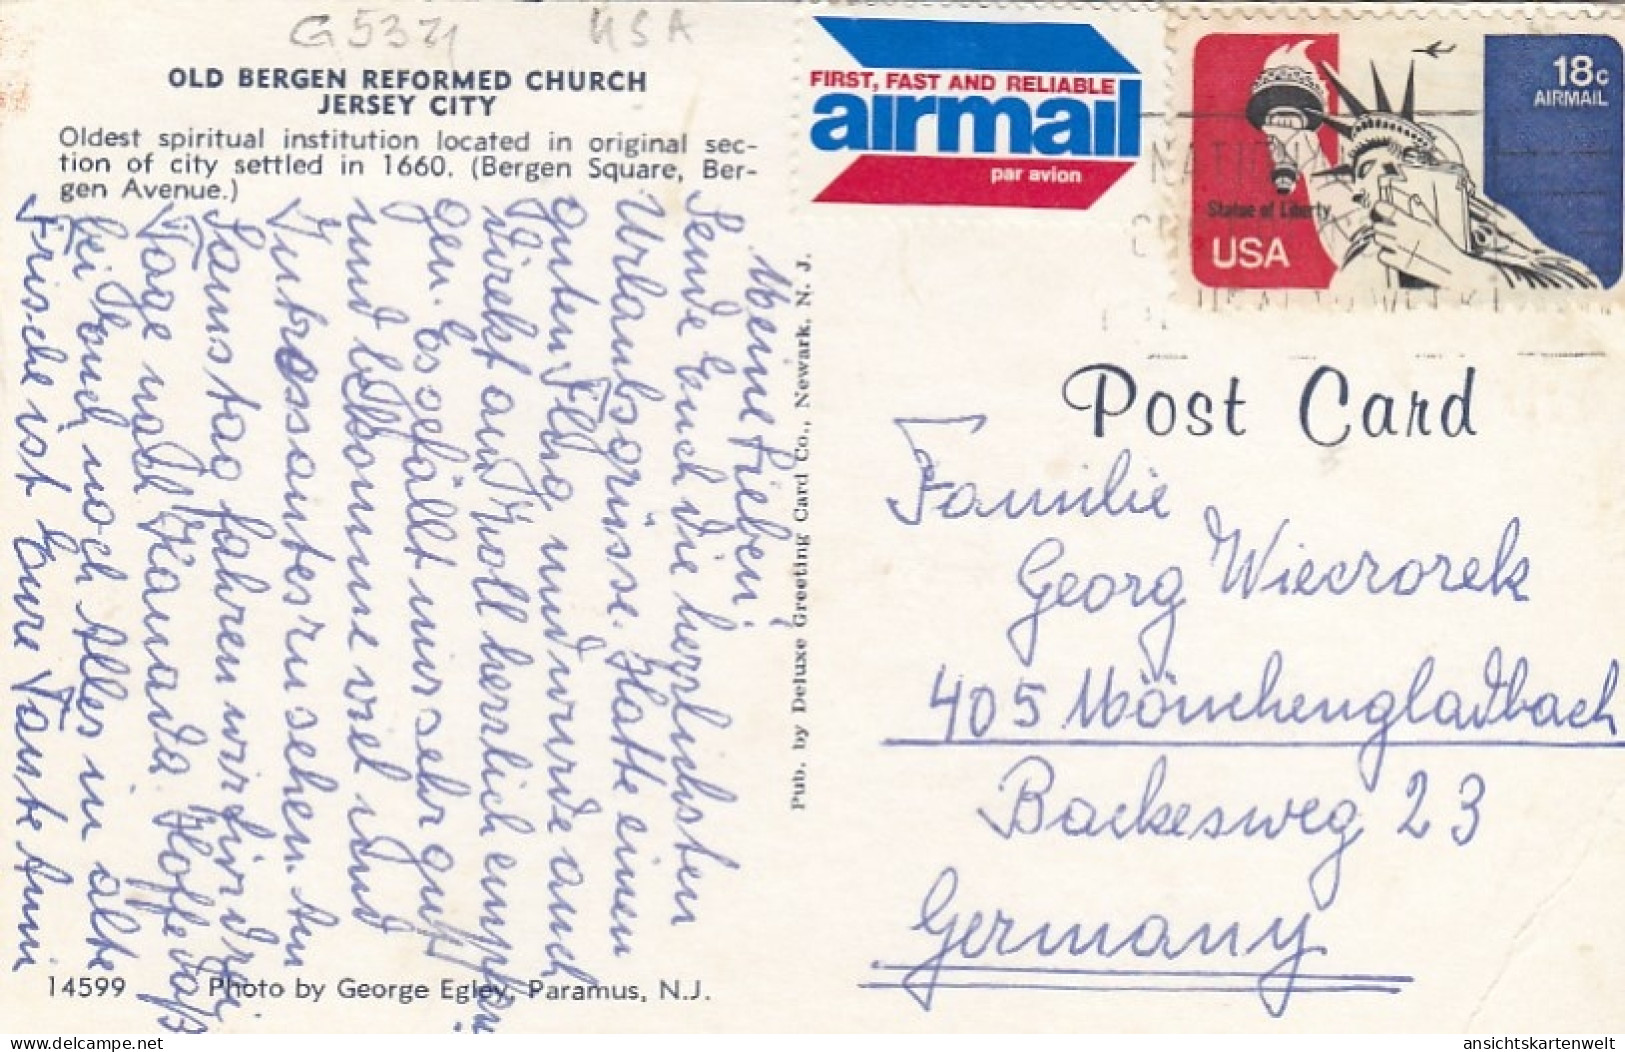 G5371 USA
OLD BERGEN REFORMED CHURCH
JERSEY CITY
Oldest spiritual institution located in original sec-
tion of city settled in 1660. (Bergen Square, Ber-
gen Avenue.)
Meine Lieben!
Sende Euch die herzlichsten
Urlaubsgrüsse. Hatte einen
guten Flug und wurde auch
direkt am Zoll herzlich empfan
gen. Es gefällt mir sehr gut
und bekomme viel und
Intressantes zu sehen. Am
Samstag fahren wir für drei
Tage nach Kanada. Hoffe daß
bei Euch noch Alles in alte
Frische ist Eure Tante Anni
14599 Photo by George Egley, Paramus, N.J.
Pub. by Deluxe Greeting Card Co., Newark, N. J.
FIRST, FAST AND RELIABLE
airmail
par avion
18c
AIRMAIL
Statue of Liberty
USA
Post Card
Familie
Georg Wieczorek
405 Mönchengladbach
Backesweg 23
Germany
ansichtskartenwelt